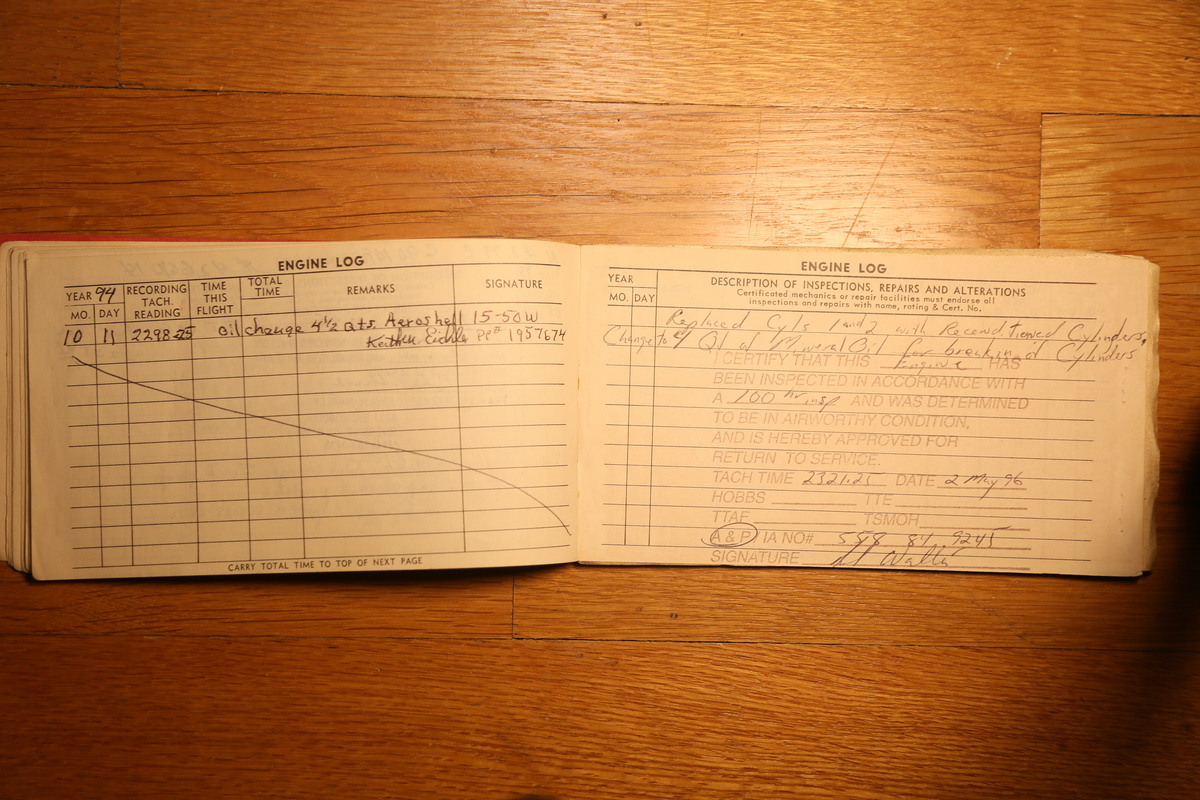 ENGINE LOG
YEAR 94 RECORDING TACH. READING TIME THIS FLIGHT TOTAL TIME REMARKS SIGNATURE
MO. DAY
10 11 2298.25 Oil change 4 1/2 Qts. Aeroshell 15-50W
Keith Eichle PP# 1957674
CARRY TOTAL TIME TO TOP OF NEXT PAGE
ENGINE LOG
YEAR
MO. DAY
DESCRIPTION OF INSPECTIONS, REPAIRS AND ALTERATIONS
Certificated mechanics or repair facilities must endorse all
inspections and repairs with name, rating & Cert. No.
Replaced Cyls 1 and 2 with Reconditioned Cylinders,
Change to 4 Qt of Mineral Oil for break in of Cylinders
I CERTIFY THAT THIS Engine HAS
BEEN INSPECTED IN ACCORDANCE WITH
A 100 hr insp AND WAS DETERMINED
TO BE IN AIRWORTHY CONDITION,
AND IS HEREBY APPROVED FOR
RETURN TO SERVICE.
TACH TIME 2321.25 DATE 2 May 96
HOBBS TTE
TTAF TSMOH
A & P IA NO# 558 84 9245
SIGNATURE Walth